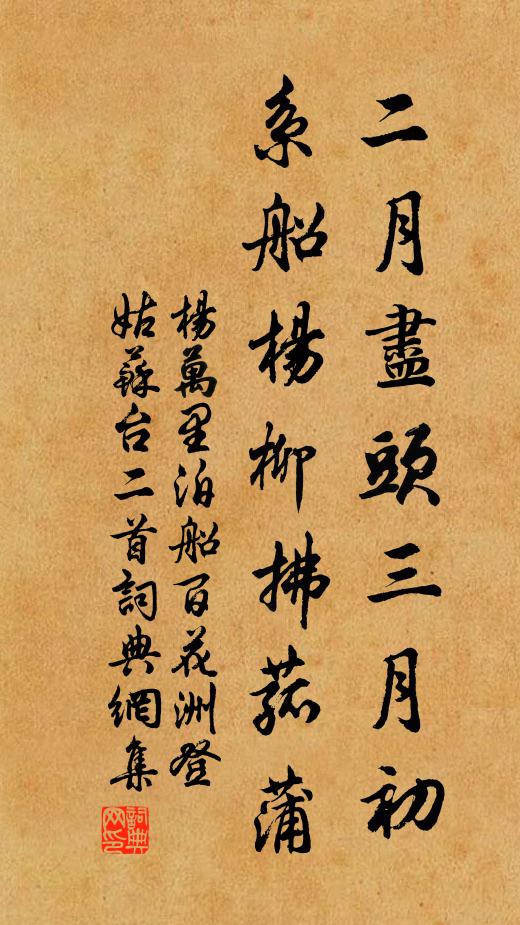 二月盡頭三月初
系船楊柳拂菰蒲
楊萬里泊船百花洲登
姑蘇台二首詞典網集
詞典網印